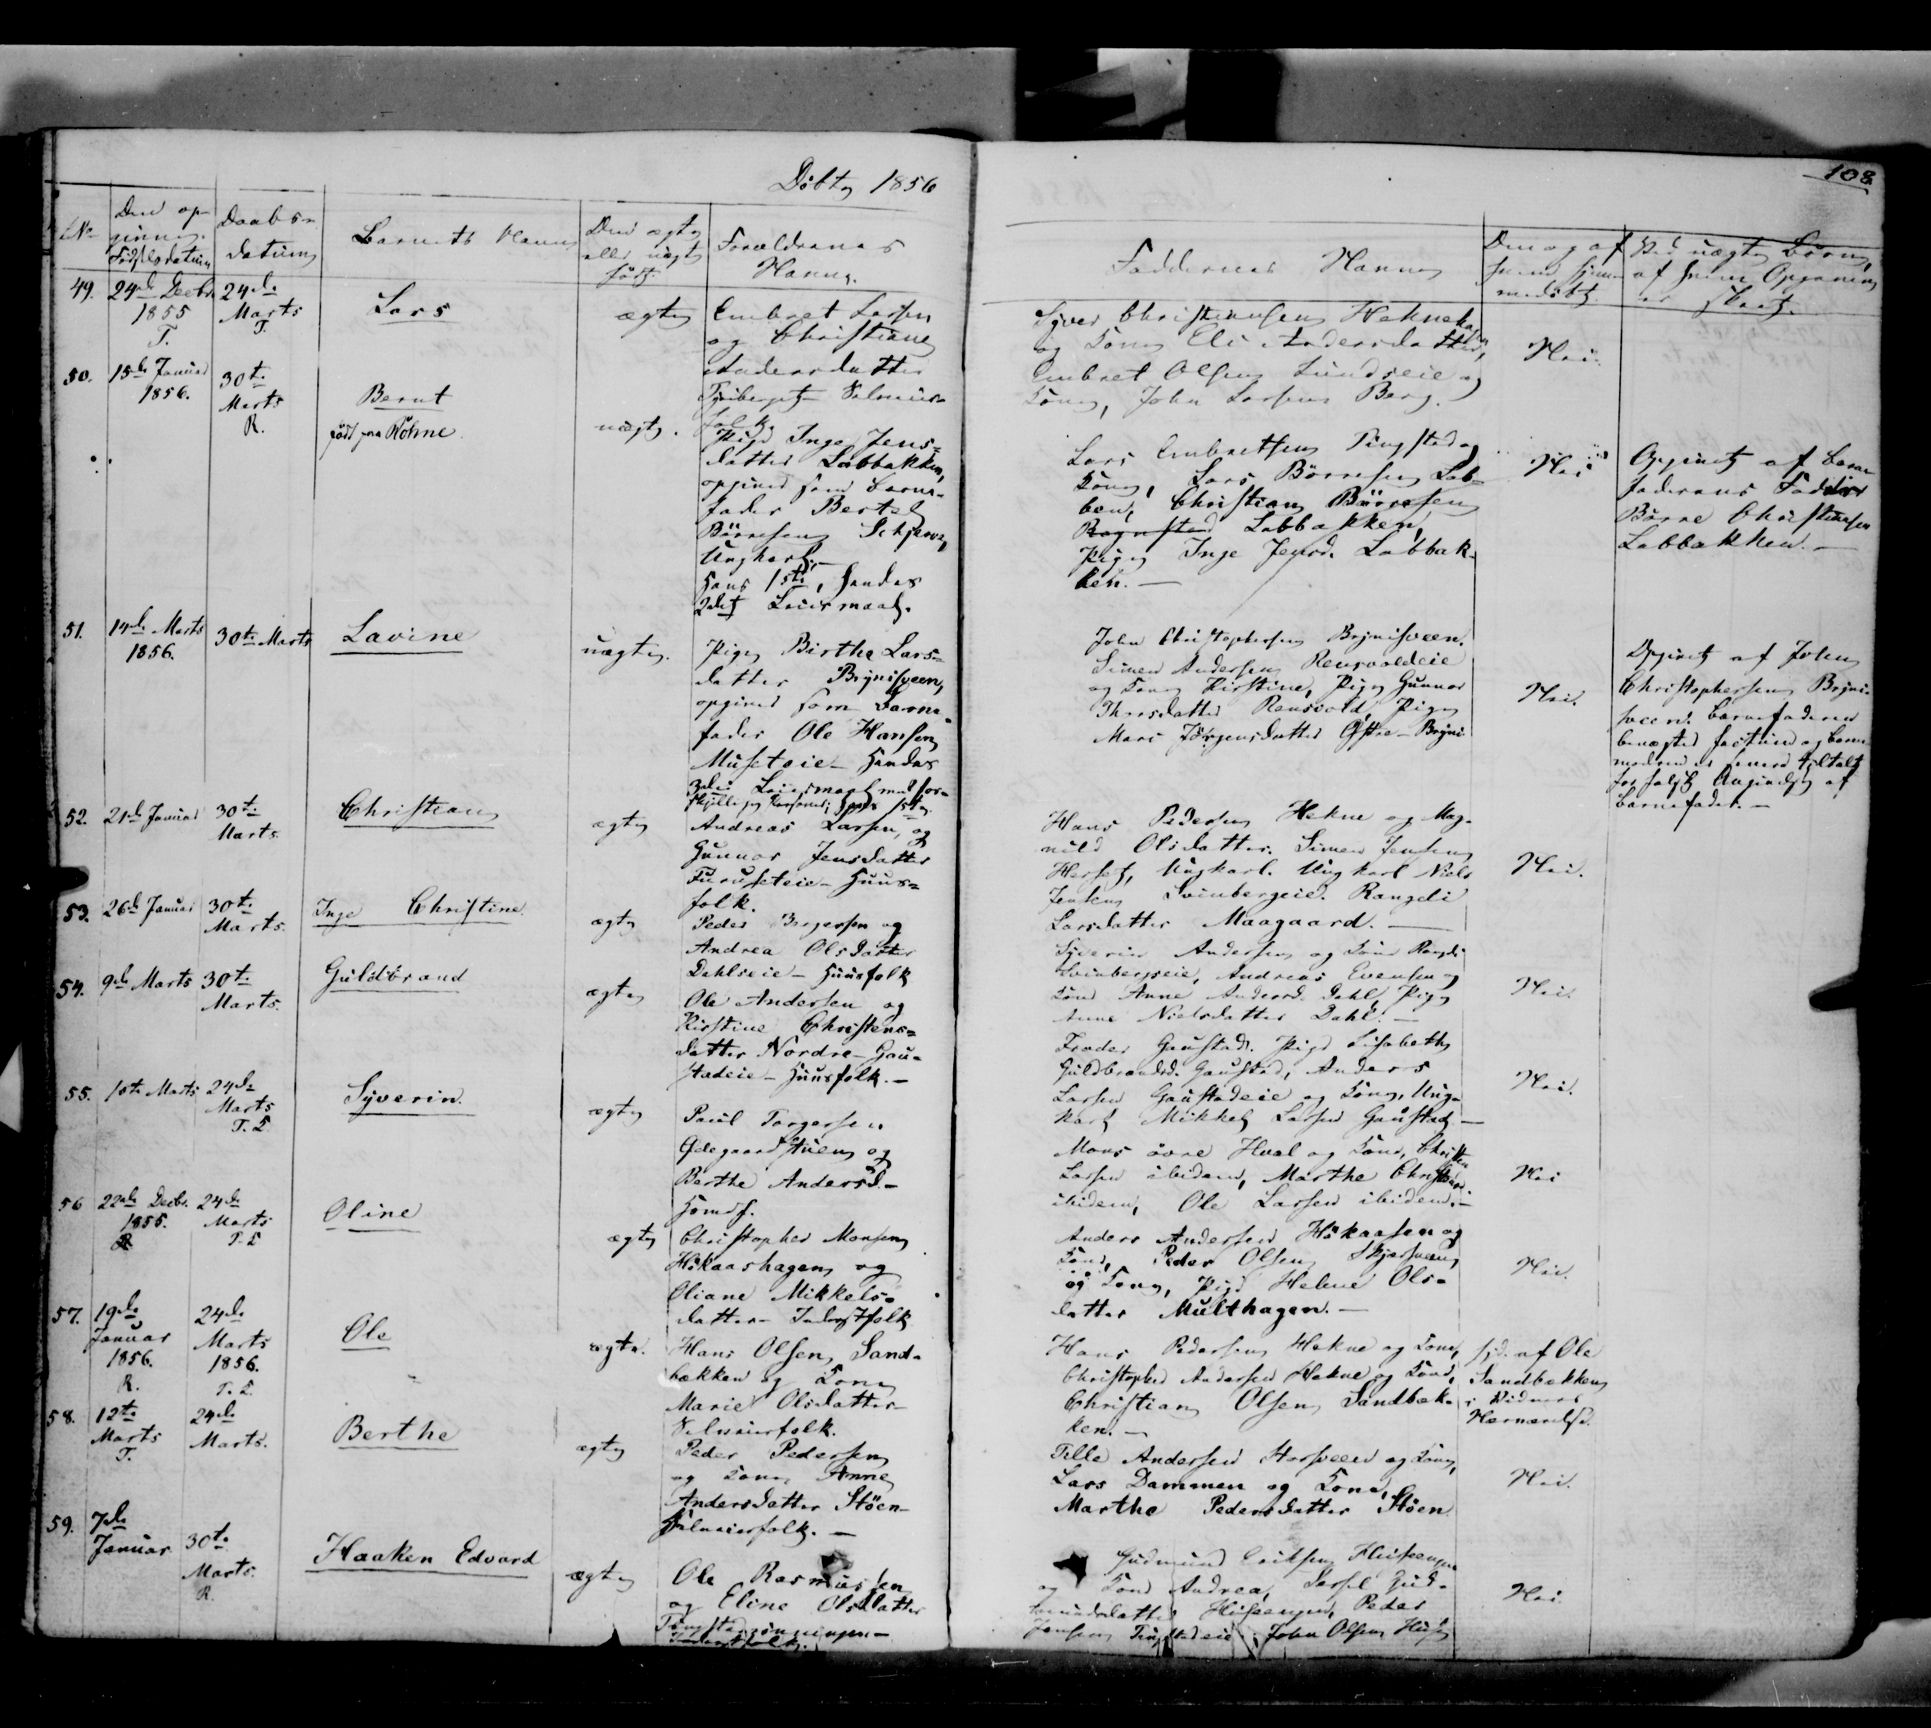 Döbte 1856
108
No
Den op-
givne
Födselsdatum
Daabs-
datum
Barnets Navn
Den ægte
eller uægte
født.
Forældrenes
Navne.
Faddernes Navne
Om og af
hvem hjem-
medöbt.
Ved uægte Børn,
af hvem Opgaven
er skeet.
49.
24de Decbr
1855
T.
24de
Marts
T.
Lars
ægte
Embret Larsen
og Christiane
Andersdatter
Selveier-
folk.
Syver Christiansen Hekneb
og Kone Eli Andersdatter,
Embret Olsen Lundseie og
Kone, John Larsen Berg.
Nei.
50.
15de Januar
1856.
30te
Marts
R.
Bernt
født paa Röhne.
uægte.
Pige Inge Jens-
datter Labbakken,
opgived som Barne-
fader Bertel
Börresen
Ungkarl.
Hans 1ste, hendes
2det Leiermaal.
Lars Embretsen Tingstad og
Kone, Lars Börresen Lab-
ben, Christian Börresen
Labbakken,
Pige Inge Jensd. Labbak-
ken.
Nei
Opgivet af Barne-
faderens Fader
Börre Christiansen
Labbakken.
51.
14de Marts
1856.
30te Marts
Lavine
uægte.
Pige Birthe Lars-
datter Brynisveen,
opgived som Barne-
fader Ole Hansen
Museteie. Hendes
3die Leiermaal med for-
skjellige Personer, hans 1ste.
John Christophersen Brynisveen.
Simen Andersen Rensvoldeie
og Kone Kirstine, Pige Gunnor
Thorsdatter Rensvold, Pige
Mari Jörgensdatter Östre-Bryni
Nei.
Opgivet af John
Christophersen Bryni-
sveen. Barnefaderen
benægter factum og Barne-
moderen er forud tiltalt
for falsk Angivelse af
Barnefader.
52.
21de Januar
30te
Marts
Christian
ægte
Andreas Larsen, og
Gunnor Jensdatter
Furuseteie - Huus-
folk.
Hans Pedersen Hekne og Mag-
nild Olsdatter. Simen Jensen
Herset, Ungkarl. Ungkarl Niels
Jensen Svenbergeie. Rangdi
Larsdatter Maagaard.
Nei.
53.
26de Januar
30te
Marts.
Inge Christine
ægte
Peder Borgersen og
Andrea Olsdatter
Dahlseie - Huusfolk
Syverin Andersen og Kone Rangdi
Svenbergseie, Andreas Evensen og
Kone Anne Andersd. Dahl, Pige
Anne Nielsdatter Dahl.
Nei.
54.
9de Marts
30te
Marts.
Guldbrand
ægte
Ole Andersen og
Kirstine Christens-
datter Nordre-Gau-
stadeie - Huusfolk.
Gaustad. Pige Lisabeth
Guldbrandsd. Gaustad, Anders
Larsen Gaustadeie og Kone, Ung-
karl Mikkel Larsen Gaustad
Nei.
55.
10de Marts
24de
Marts
T. K
Syverin
ægte
Paul Torgersen
Ödegaardstuen og
Berthe Andersd.
Mons övre Hval og Kone, Christen
Larsen ibidem, Marthe Christens
ibidem, Ole Larsen ibidem.
Nei
56
22de Decbr.
1855.
R
24de
Marts
T. K
Oline
ægte
Christopher Monsen
Hökaashagen og
Oliane Mikkels-
datter - Inderstfolk
Anders Andersen Hökaasen og
Kone, Peder Olsen
og Kone, Pige Helene Ols-
datter Multhagen.
Nei.
57.
19de
Januar
1856.
R.
24de
Marts
1856.
T. K.
Ole
ægte.
Hans Olsen Sand-
bækken og Kone
Marie Olsdatter
Selveierfolk.
Hans Pedersen Hekne og Kone,
Christopher Andersen Hekne og Kone,
Christian Olsen Sandbæk-
ken.
hjd. af Ole
Sandbækken
i Vidners
Nærværelse.
58.
12te
Marts
T.
24de
Marts.
Berthe
ægte
Peder Pedersen
og Kone Anne
Andersdatter Stöen
Selveierfolk.
Tille Andersen Storsveen og Kone,
Lars Dammen og Kone,
Marthe Pedersdatter Stöen
Nei.
59.
7de
Januar
30te
Marts.
R.
Haaken Edvard
ægte
Ole Rasmussen
og Eline Olsdatter
Inderstfolk.
Gudmund Eriksen
og Kone Andrea, Gud-
mundsdatter Peder
Jensen Tingstadeie, John Olsen
Nei